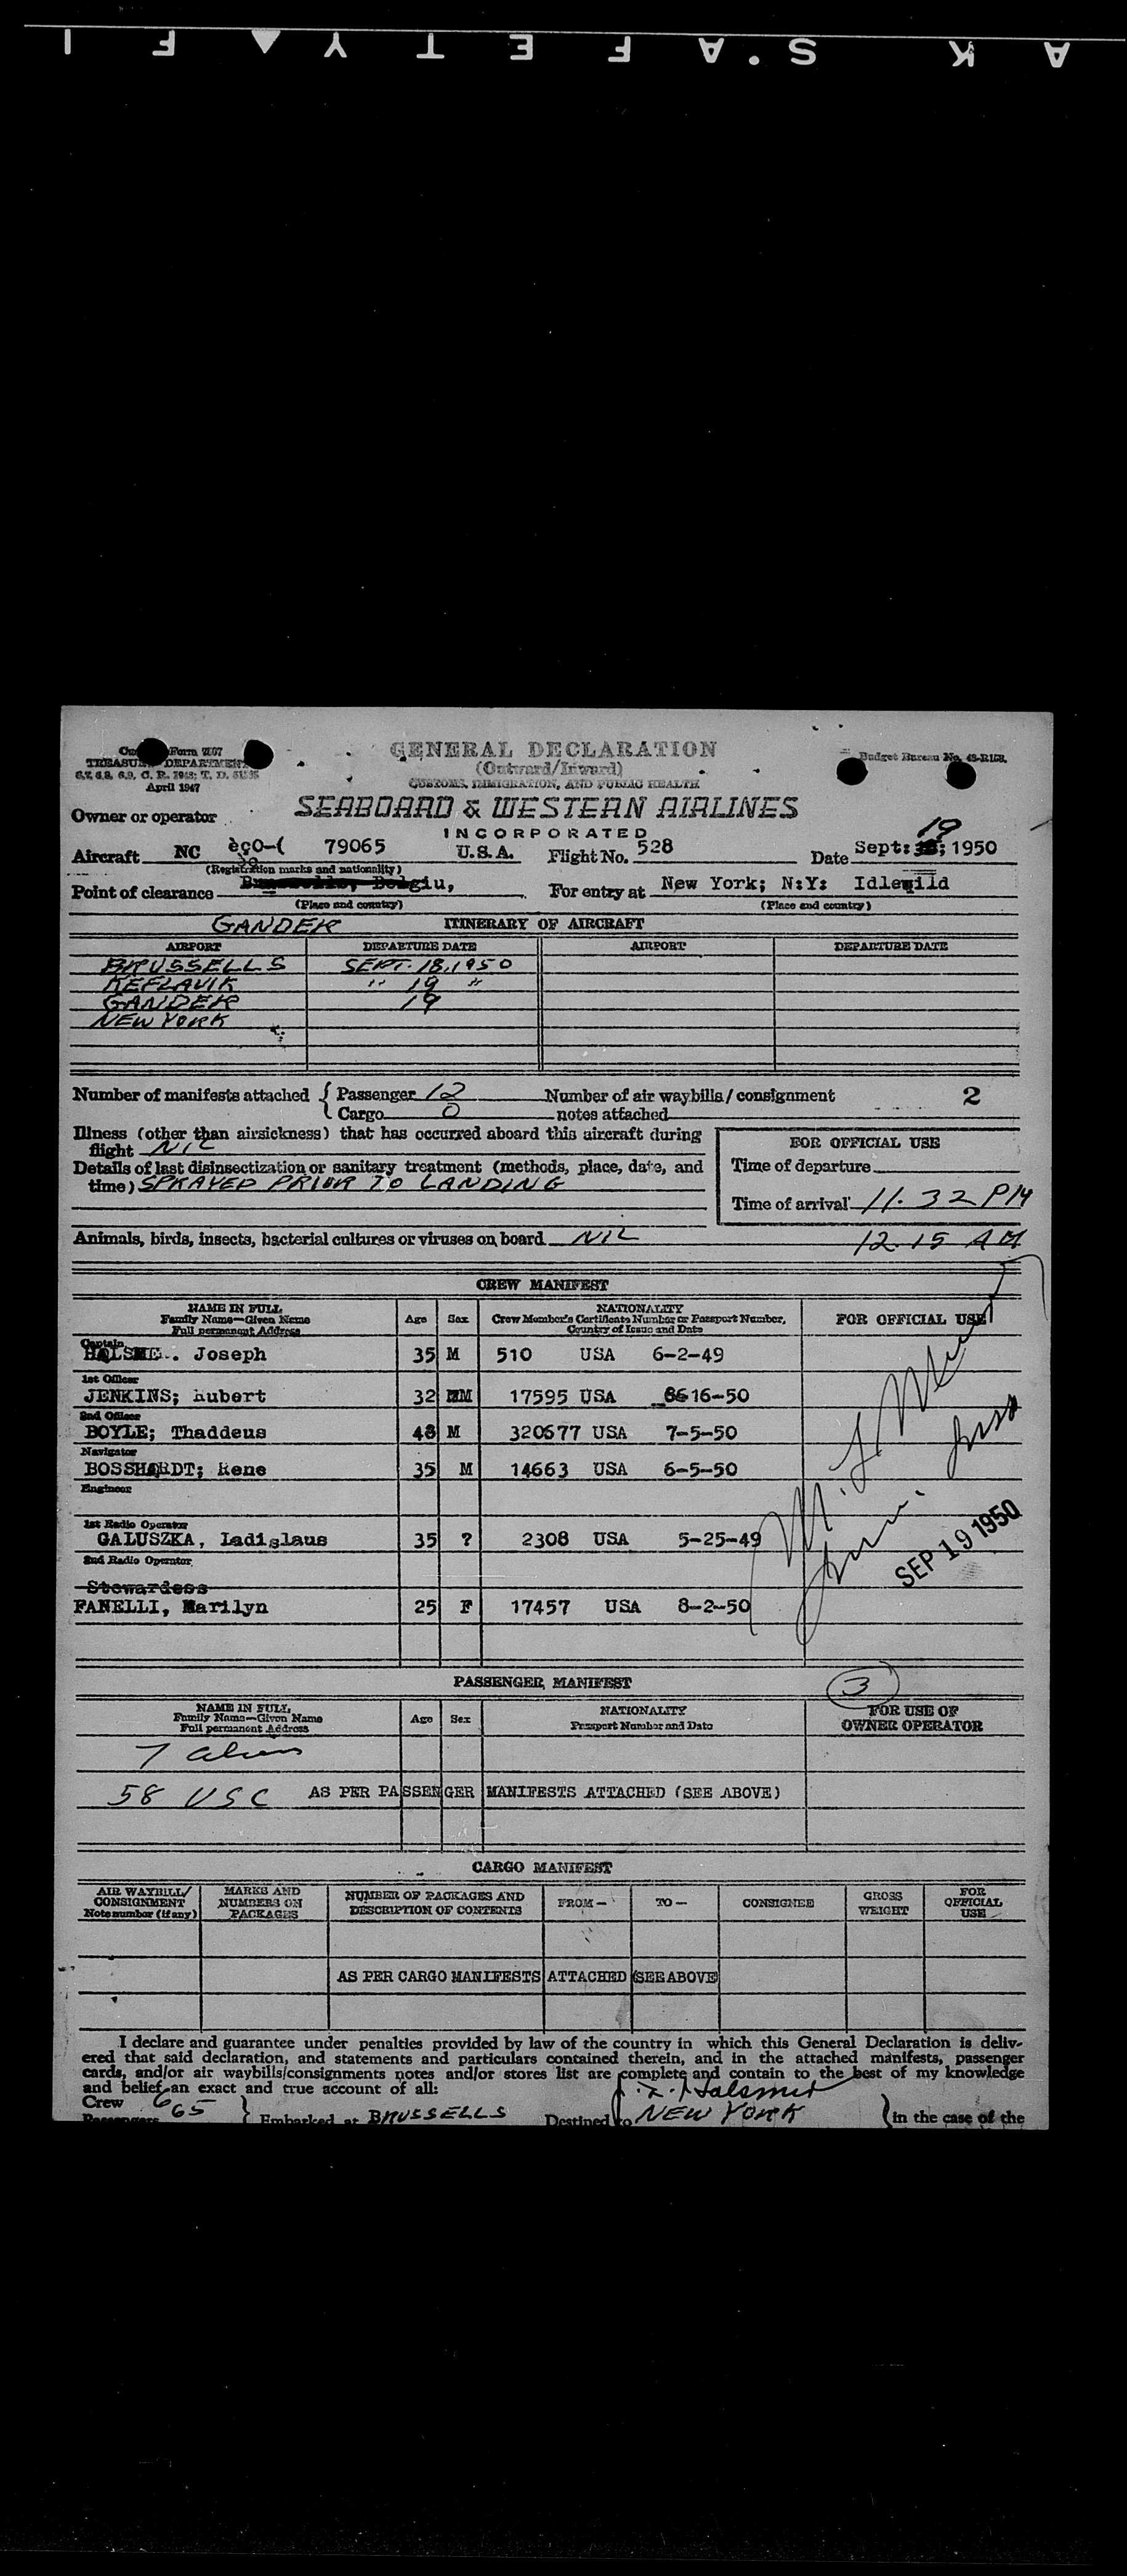 SAFETY FI
GENERAL DECLARATION
(Outward/Inward)
CUSTOMS, IMMIGRATION, AND PUBLIC HEALTH
Form 7507
TREASURY DEPARTMENT
April 1947
Budget Bureau No.
SEABOARD & WESTERN AIRLINES
INCORPORATED
Owner or operator
Aircraft NC èçO-( 79065 U.S.A. Flight No. 528 Date Sept: 19; 1950
(Registration marks and nationality)
Point of clearance Belgiu, For entry at New York; N:Y: Idlewild
(Place and country) (Place and country)
GANDER ITINERARY OF AIRCRAFT
AIRPORT DEPARTURE DATE AIRPORT DEPARTURE DATE
BRUSSELLS SEPT. 18, 1950
KEFLAVIK " 19 "
GANDER 19
NEW YORK
Number of manifests attached { Passenger 12 Number of air waybills/consignment 2
Cargo 0 notes attached
Illness (other than airsickness) that has occurred aboard this aircraft during
flight NIL
FOR OFFICIAL USE
Details of last disinsectization or sanitary treatment (methods, place, date, and
time) SPRAYED PRIOR TO LANDING
Time of departure
Time of arrival 11.32 PM
Animals, birds, insects, bacterial cultures or viruses on board NIL 12.15 AM
CREW MANIFEST
NAME IN FULL
Family Name—Given Name
Full permanent Address
Age Sex
NATIONALITY
Crew Member's Certificate Number or Passport Number,
Country of Issue and Date
FOR OFFICIAL USE
Captain
Joseph 35 M 510 USA 6-2-49
1st Officer
JENKINS; Hubert 32 M 17595 USA 16-50
2nd Officer
BOYLE; Thaddeus 48 M 320577 USA 7-5-50
Navigator
BOSSHARDT; Rene 35 M 14663 USA 6-5-50
Engineer
1st Radio Operator
GALUSZKA, Ladislaus 35 ? 2308 USA 5-25-49
2nd Radio Operator
Stewardess
FANELLI, Marilyn 25 F 17457 USA 8-2-50
SEP 19 1950
PASSENGER MANIFEST 3
NAME IN FULL
Family Name—Given Name
Full permanent Address
Age Sex
NATIONALITY
Passport Number and Date
FOR USE OF
OWNER OPERATOR
7 aliens
58 USC AS PER PASSENGER MANIFESTS ATTACHED (SEE ABOVE)
CARGO MANIFEST
AIR WAYBILL/
CONSIGNMENT
Note number (if any)
MARKS AND
NUMBERS ON
PACKAGES
NUMBER OF PACKAGES AND
DESCRIPTION OF CONTENTS
FROM— TO— CONSIGNEE
GROSS
WEIGHT
FOR
OFFICIAL
USE
AS PER CARGO MANIFESTS ATTACHED (SEE ABOVE)
I declare and guarantee under penalties provided by law of the country in which this General Declaration is deliv-
ered that said declaration, and statements and particulars contained therein, and in the attached manifests, passenger
cards, and/or air waybills/consignments notes and/or stores list are complete and contain to the best of my knowledge
and belief an exact and true account of all:
Crew 6
Passengers 65 } Embarked at BRUSSELLS Destined to NEW YORK } in the case of the